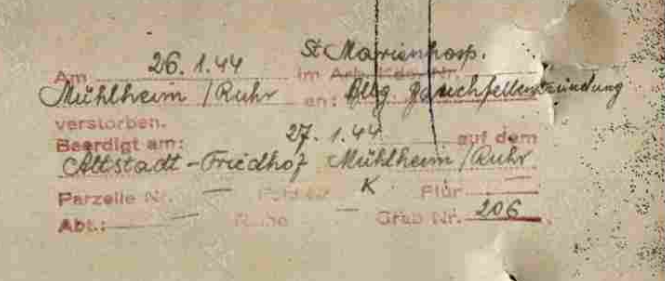 Am 26. 1. 44 St. Marienhosp. im Arb.Kdo. Nr.
Mühlheim / Ruhr an: Allg. Bauchfellentzündung
verstorben.
Beerdigt am: 27. 1. 44 auf dem
Altstadt-Friedhof Mühlheim / Ruhr
Parzelle Nr. — K Flur —
Abt.: — Reihe — Grab Nr. 206.